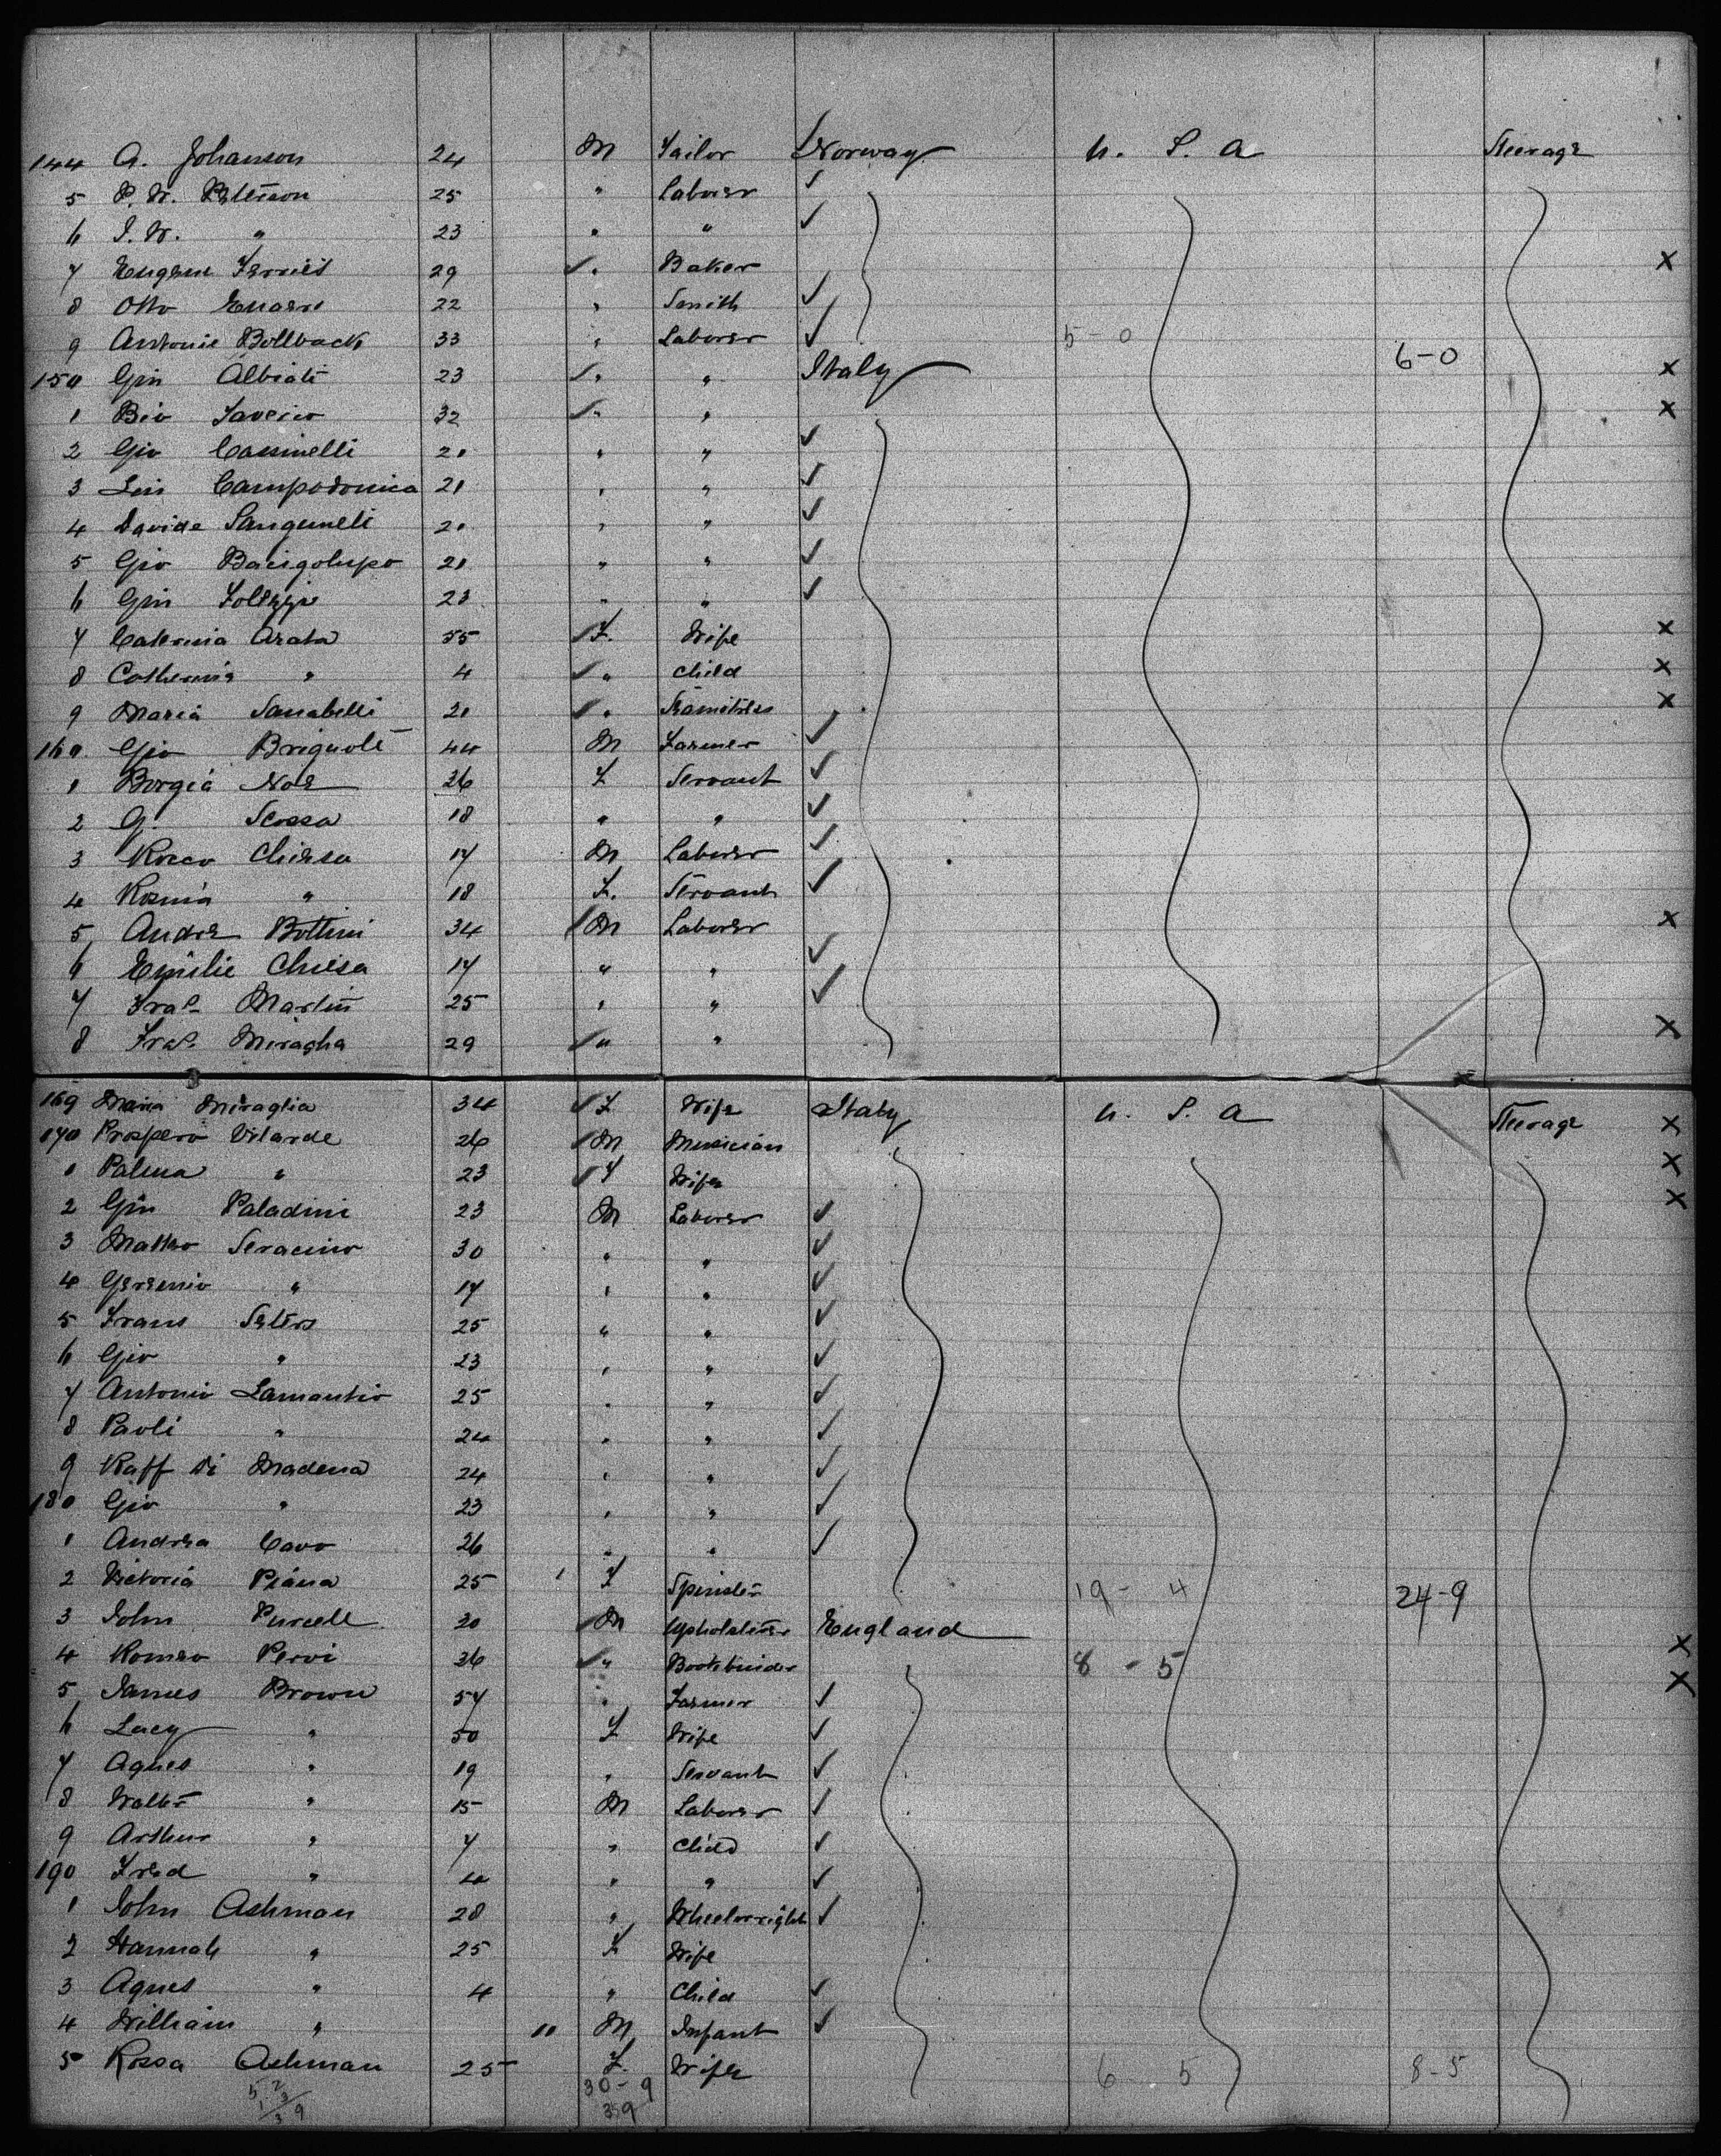 144 A. Johanson 24 M Sailor Norway U. S. A Steerage
5 P. W. Peterson 25 " Laborer ✓
6 I. W. " 23 " " ✓
7 Eugene 29 ✓ " Baker x
8 Otto 22 " Smith ✓
9 Antonie Bollback 33 " Laborer ✓ 5-0
6-0
150 Gin Albiati 23 ✓ " " Italy x
1 Bio Saverio 32 ✓ " " x
2 Gio Cassinelli 21 " " ✓
3 Luis Campodonica 21 " " ✓
4 Davide Sanguineti 21 " " ✓
5 Gio Bacigolupo 21 " " ✓
6 Gin 23 " " ✓
7 Caterina Arata 55 ✓ F. Wife x
8 Catherina " 4 ✓ " Child x
9 Maria Sanabelli 21 ✓ " x
160 Gio Brignole 44 M Farmer ✓
1 Borgia Noe 26 F Servant ✓
2 G. Scossa 18 " " ✓
3 Rocco Chiesa 17 M Laborer ✓
4 Rosina " 18 F. Servant ✓
5 Andre Bottini 34 ✓ M Laborer x
6 Emilie Chiesa 17 " " ✓
7 Fra Martin 25 " " ✓
8 Fra Miragha 29 ✓ " " x
169 Maria Miraglia 34 ✓ F Wife Italy U. S. A Steerage x
170 Prospero Vilarde 26 ✓ M Musician x
1 Palma " 23 ✓ F Wife x
2 Gin Paladini 23 M Laborer ✓
3 Matteo Seracino 30 " " ✓
4 Gerenio " 17 " " ✓
5 Frans Seters 25 " " ✓
6 Gio " 23 " " ✓
7 Antonio Lamantio 25 " " ✓
8 Paoli " 24 " " ✓
9 Raff di Madena 24 " " ✓
180 Gio " 23 " " ✓
1 Andrea Cavo 26 " " ✓
2 Victoria Piana 25 F Spinster 19-4 24-9
3 John Purcell 20 ✓ M Upholsterer England x
4 Romeo Pervi 26 ✓ " Bookbinder 8-5 x
5 James Brown 57 " Farmer ✓
6 Lucy " 50 F Wife ✓
7 Agnes " 19 " Servant ✓
8 Walter " 15 M Laborer ✓
9 Arthur " 7 " Child ✓
190 Fred " 4 " " ✓
1 John Ashman 28 " Wheelwright ✓
2 Hannah " 25 F Wife
3 Agnes " 4 " Child ✓
4 William " 11 M Infant ✓
5 Rossa Ashman 25 F. Wife 6 5 8-5
30-9
359